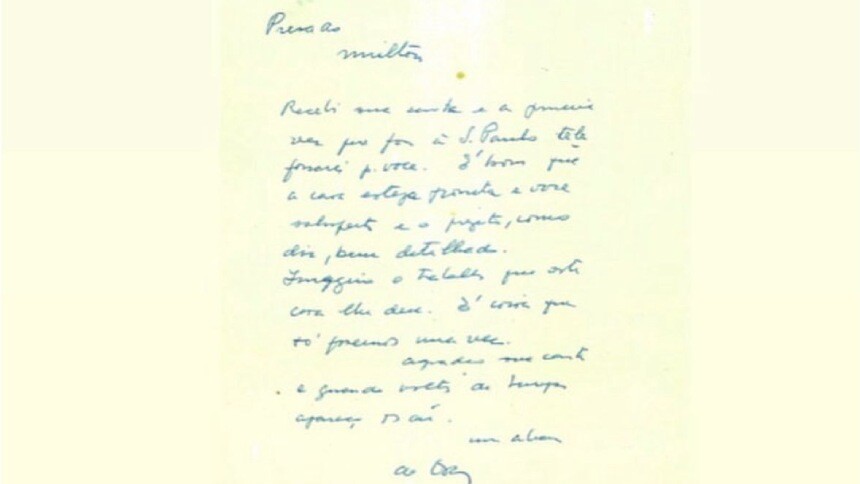 Prezado
Milton
Recebi sua carta e a primeira
vez que for à S. Paulo tele
fonarei p. voce. É bom que
a casa esteja pronta e voce
satisfeito e o projeto, como
diz, bem detalhado.
Imagino o trabalho que esta
casa lhe deu. É coisa que
só fazemos uma vez.
agradeço sua carta
e quando voltar da Europa
apareça
um abraço
do